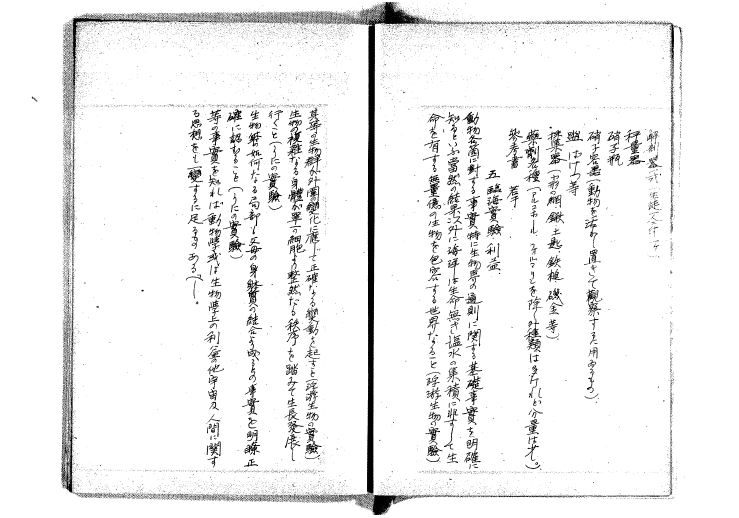 解剖器 一式
秤量器
硝子瓶
硝子容器(動物を活かし置きて観察するに用ゆるもの)
皿 ばけつ等
採集器(網 鍬 土匙 鉄槌 磯金 等)
薬剤各種(アルコホール、フォルマリンを除く外種類は多けれど分量は少し。)
参考書 若干
五 臨海実験ノ利益
動物各箇に対する事實特に生物界の通則に関する基礎事實を明確に
知るといふ當然の結果以外に海洋は生命無き塩水の集積に非ずして生
命を有する無量億の生物を包容する世界なること(浮游生物の實驗)
其等の生物群が外圍の變化に應じて正確なる變動を起すこと(浮游生物の實驗)
生物の複雑なる身體が單一の細胞より整然なる秩序を踏みて生長発展し
行くこと(うにの實驗)
生物は如何なる局部も父母の身體質の結合より成るとの事實を明瞭正
確に認むること(うにの實驗)
等の事實を知れば動物學或は生物學上の利益の他宇宙及人間に関す
る思想をも一變するに足るものあるべし。